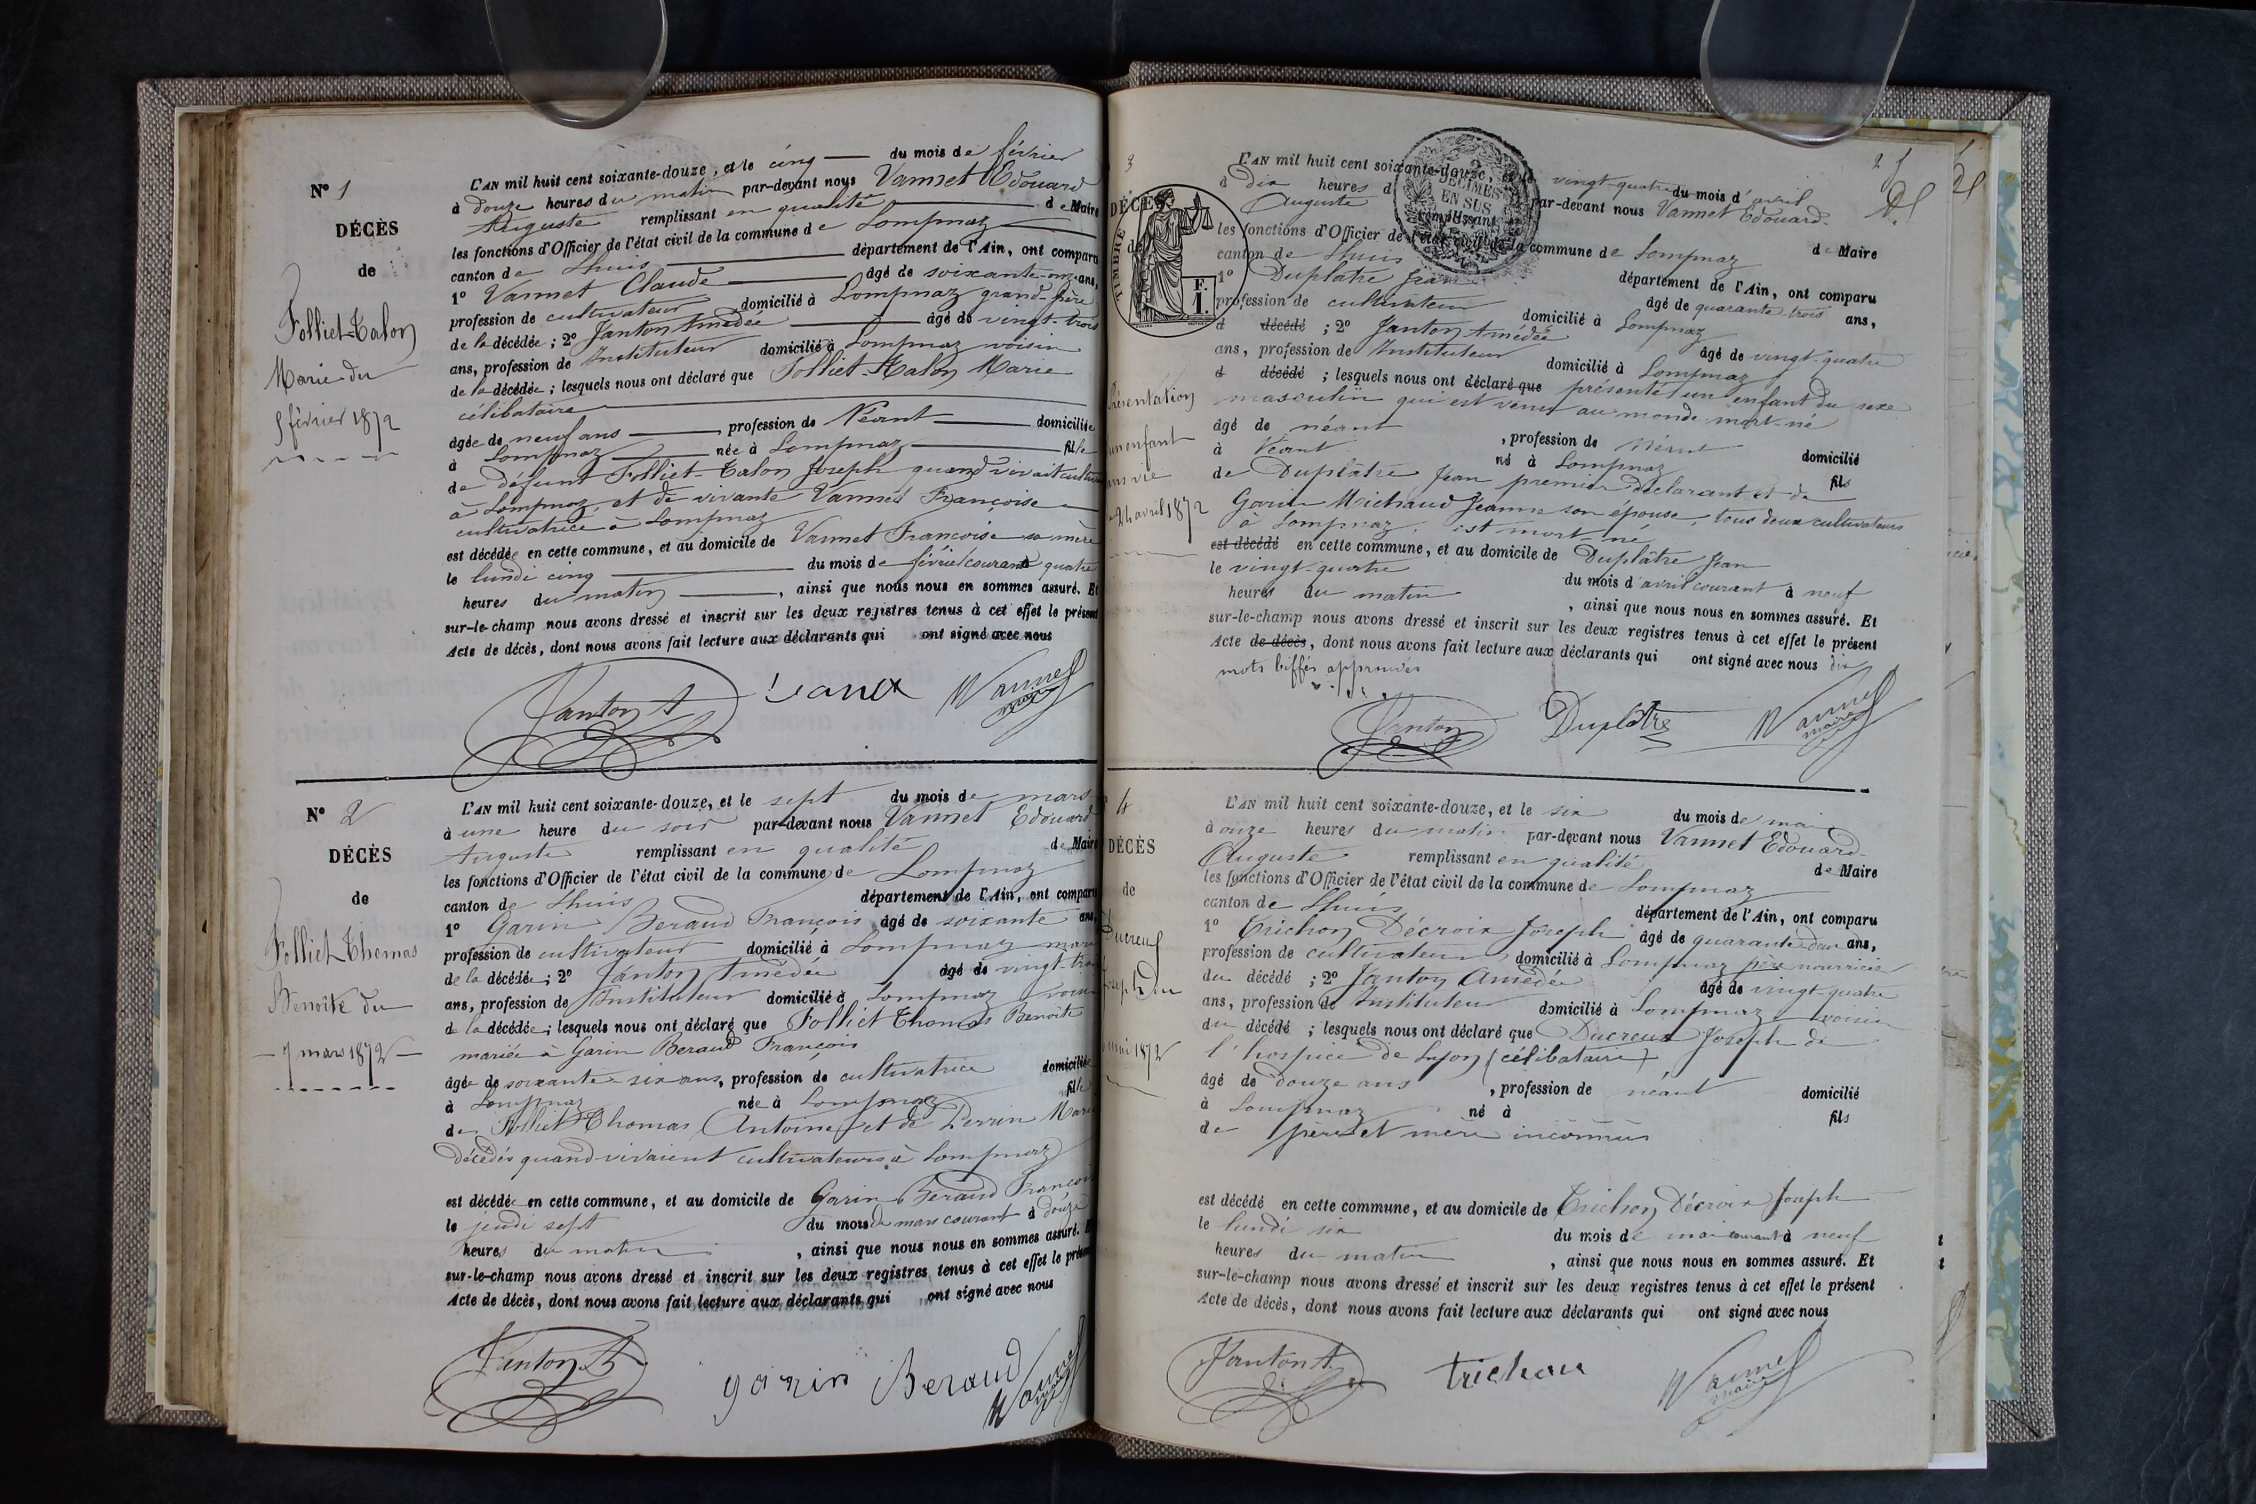 Nº 1
DÉCÈS
de
Folliet-Talon
Marie du
5 février 1872
L'AN mil huit cent soixante-douze, et le cinq du mois de février
à douze heures du matin par-devant nous Vannet Edouard
Auguste remplissant en qualité de Maire
les fonctions d'Officier de l'état civil de la commune de Lompnaz
canton de Lhuis département de l'Ain, ont comparu
1º Vannet Claude âgé de soixante-onze ans,
profession de cultivateur domicilié à Lompnaz grand-père
de la décédée ; 2º Janton Amédée âgé de vingt-trois
ans, profession de Instituteur domicilié à Lompnaz voisin
de la décédée ; lesquels nous ont déclaré que Folliet-Talon Marie
célibataire
âgée de neuf ans, profession de Néant domiciliée
à Lompnaz née à Lompnaz fille
de défunt Folliet-Talon Joseph quand vivait
à Lompnaz, et de vivante Vannet Françoise
cultivatrice à Lompnaz
est décédée en cette commune, et au domicile de Vannet Françoise sa mère
le lundi cinq du mois de février courant à quatre
heures du matin, ainsi que nous nous en sommes assuré. Et
sur-le-champ nous avons dressé et inscrit sur les deux registres tenus à cet effet le présent
Acte de décès, dont nous avons fait lecture aux déclarants qui ont signé avec nous
Janton A Vannet
maire
Nº 2
DÉCÈS
de
Folliet-Thomas
Benoîte du
7 mars 1872
L'AN mil huit cent soixante-douze, et le sept du mois de mars
à une heure du soir par-devant nous Vannet Edouard
Auguste remplissant en qualité de Maire
les fonctions d'Officier de l'état civil de la commune de Lompnaz
canton de Lhuis département de l'Ain, ont comparu
1º Garin Beraud François âgé de soixante ans,
profession de cultivateur domicilié à Lompnaz mari
de la décédée ; 2º Janton Amédée âgé de vingt-trois
ans, profession de Instituteur domicilié à Lompnaz voisin
de la décédée ; lesquels nous ont déclaré que Folliet Thomas Benoîte
mariée à Garin Beraud François
âgée de soixante-six ans, profession de cultivatrice domiciliée
à Lompnaz née à Lompnaz fille
de Folliet-Thomas Antoine et de Perrin Marie
décédés quand vivaient cultivateurs à Lompnaz
est décédée en cette commune, et au domicile de Garin Beraud François
le jeudi sept du mois de mars courant à douze
heures du matin, ainsi que nous nous en sommes assuré. Et
sur-le-champ nous avons dressé et inscrit sur les deux registres tenus à cet effet le présent
Acte de décès, dont nous avons fait lecture aux déclarants qui ont signé avec nous
Janton A garin Beraud Vannet
maire
3
DÉCÈS
de
TIMBRE
F.
1.
2 DÉCIMES
EN SUS
Présentation
un enfant
sans vie
24 avril 1872
L'AN mil huit cent soixante-douze, et le vingt-quatre du mois d'avril
à dix heures d par-devant nous Vannet Edouard
Auguste remplissant de Maire
les fonctions d'Officier de l'état civil de la commune de Lompnaz
canton de Lhuis département de l'Ain, ont comparu
1º Duplâtre Jean âgé de quarante-trois ans,
profession de cultivateur domicilié à Lompnaz
d décédé ; 2º Janton Amédée âgé de vingt-quatre
ans, profession de Instituteur domicilié à Lompnaz
d décédé ; lesquels nous ont déclaré que présenté un enfant du sexe
masculin qui est venu au monde mort-né
âgé de néant, profession de néant domicilié
à Néant né à Lompnaz fils
de Duplâtre Jean premier déclarant et de
Garin Michaud Jeanne son épouse, tous deux cultivateurs
à Lompnaz. est mort-né
est décédé en cette commune, et au domicile de Duplâtre Jean
le vingt-quatre du mois d'avril courant à neuf
heures du matin, ainsi que nous nous en sommes assuré. Et
sur-le-champ nous avons dressé et inscrit sur les deux registres tenus à cet effet le présent
Acte de décès, dont nous avons fait lecture aux déclarants qui ont signé avec nous dix
mots biffés approuvés
Janton Duplâtre Vannet
maire
4
DÉCÈS
de
Ducreux
Joseph du
mai 1872
L'AN mil huit cent soixante-douze, et le six du mois de mai
à onze heures du matin par-devant nous Vannet Edouard
Auguste remplissant en qualité de Maire
les fonctions d'Officier de l'état civil de la commune de Lompnaz
canton de Lhuis département de l'Ain, ont comparu
1º Trichon Décroix Joseph âgé de quarante-deux ans,
profession de cultivateur domicilié à Lompnaz père nourricier
du décédé ; 2º Janton Amédée âgé de vingt-quatre
ans, profession de Instituteur domicilié à Lompnaz voisin
du décédé ; lesquels nous ont déclaré que Ducreux Joseph de
l'hospice de Lyon (célibataire)
âgé de douze ans, profession de néant domicilié
à Lompnaz né à fils
de père et mère inconnus
est décédé en cette commune, et au domicile de Trichon Décroix Joseph
le lundi six du mois de mai courant à neuf
heures du matin, ainsi que nous nous en sommes assuré. Et
sur-le-champ nous avons dressé et inscrit sur les deux registres tenus à cet effet le présent
Acte de décès, dont nous avons fait lecture aux déclarants qui ont signé avec nous
Janton A. trichon Vannet
maire